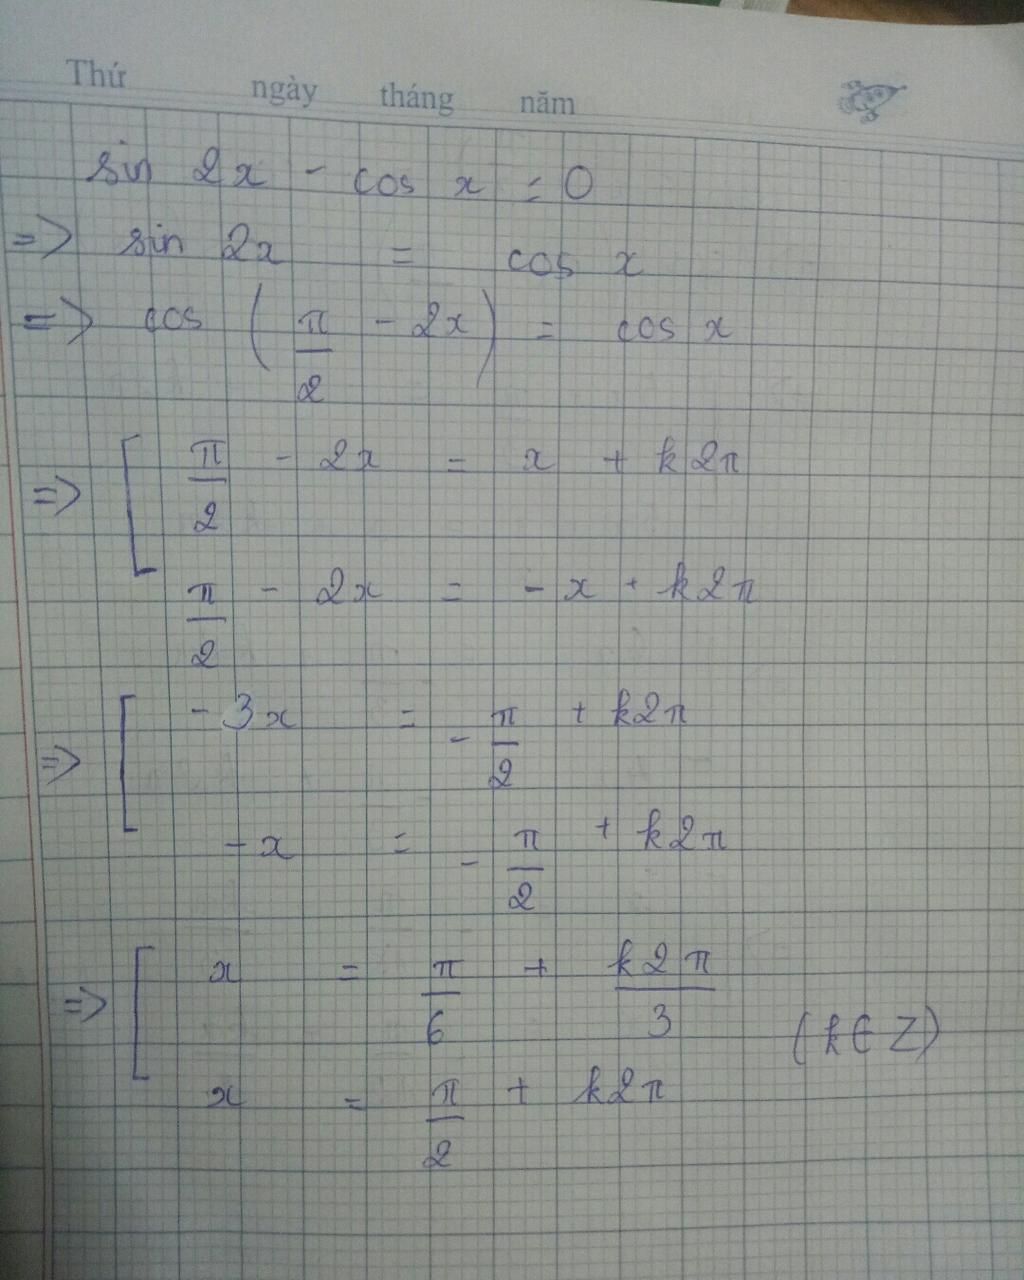 Thứ ngày tháng năm
sin 2x - cos x = 0
=> sin 2x = cos x
=> cos ( π/2 - 2x ) = cos x
=> [ π/2 - 2x = x + k2π
π/2 - 2x = - x + k2π
=> [ - 3x = - π/2 + k2π
- x = - π/2 + k2π
=> [ x = π/6 + k2π/3
(k ∈ Z)
x = π/2 + k2π